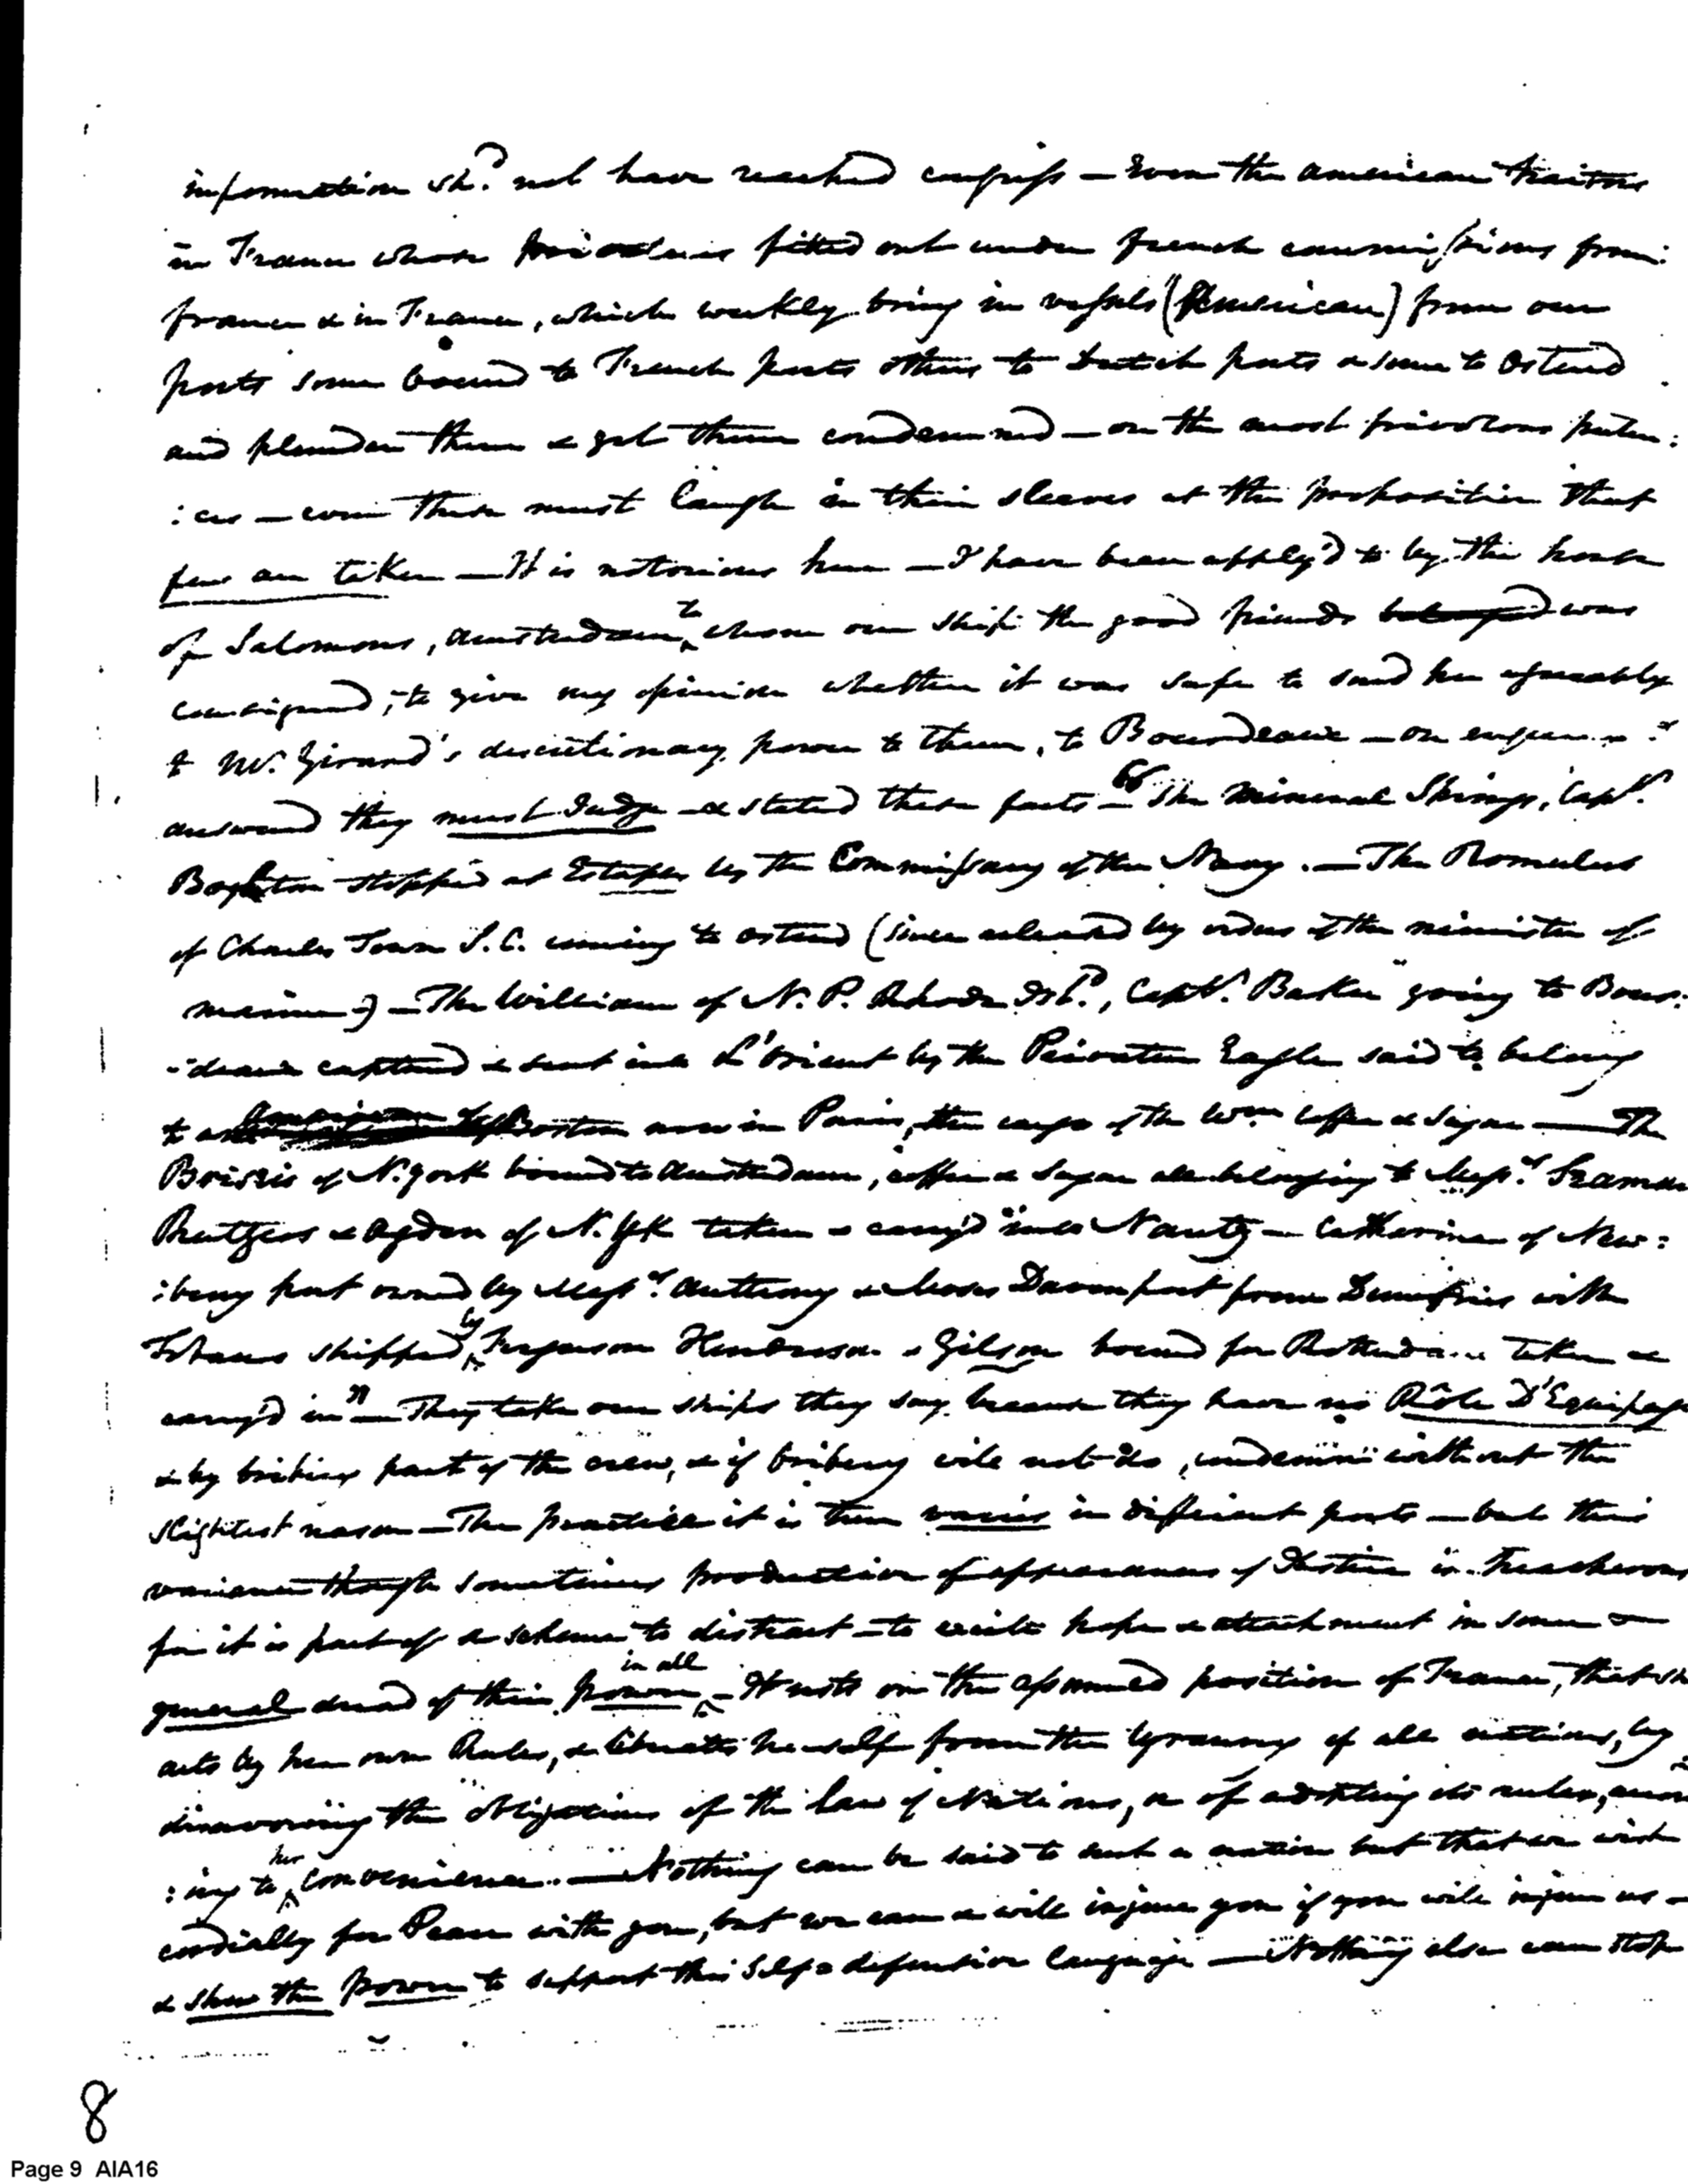 information shd. not have reached congress – Even the american traitors
in France whose privateers fitted out under french commissions from
france & in France, which weekly bring in vessels (American) from our
ports some bound to French ports others to Dutch ports & some to Ostend
and plunder them & get them condemned – on the most frivolous preten:
:ces – even these must laugh in their sleeves at the proposition that
few are taken – It is notorious here – I have been apply'd to by the house
of Salomons, Amsterdam, to whom our ship the good friends belonged was
consigned, to give my opinion whether it was safe to send her agreeably
to Mr. Girard's discretionary power to them, to Bourdeaux – on
answered they must Judge – & stated these facts – "The Mineral Springs, Capt.
Boylston stopped at Estaples by the Commissary of the Navy. – The Romulus
of Charles Town S.C. coming to Ostend (since released by orders of the minister of
marine) – The William of N. P. Rhode Isld., Capt. Baker going to Bour:
:deaux captured & sent into L'Orient by the Privateer Eagle said to belong
to Boston now in Paris, the cargo of the Wm. Coffee & Sugar — The
of N. York bound to Amsterdam, coffee & Sugar all belonging to Messrs. Seaman
Rutgers & Ogden of N. Yk taken & carry'd into Nantz – Catharine of New:
:bury port owned by Messrs. Anthony & Moses Davenport from Dumfries with
Tobacco shipped by Ferguson Henderson & Gibson bound for Rotterdam taken &
carry'd in" – They take our ships they say because they have no Rôle D'Equipage
& by bribing part of the crew, & if bribery will not do, condemn without the
slightest reason – The practice it is true varies in different ports – but this
variance though sometimes productive of appearances of Justice is treacherous
for it is part of a scheme to distract – to excite hope & attachment in some &
general dread of their power in all – It rests on the assumed position of France, that she
acts by her own Rules, & liberates herself from the tyranny of all nations, by
disavowing the obligations of the law of Nations, or of adopting its rules, accord
:ing to her convenience. – Nothing can be said to such a nation but that we wish
cordially for Peace with you, but we can & will injure you if you will injure us –
& show the power to support this self=defensive language – Nothing else can stop
8
Page 9 AIA16